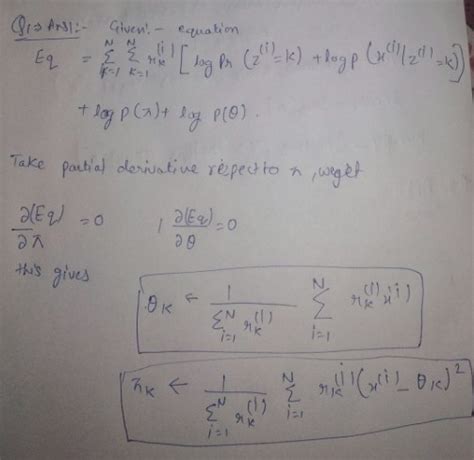 Q1→ Ans1:- Given:- equation
Eq = Σ_{k=1}^{N} Σ_{k=1}^{N} r_k^{(i)} [ log Pr (z^{(i)}=k) + log p (x^{(i)}/z^{(i)}=k) ]
+ log p(π) + log p(θ).
Take partial derivative respect to π, we get
∂(Eq)/∂π = 0 , ∂(Eq)/∂θ = 0
this gives
θ_K ← 1/(Σ_{i=1}^{N} r_k^{(i)}) Σ_{i=1}^{N} r_k^{(i)} x^{(i)}
π_K ← 1/(Σ_{i=1}^{N} r_k^{(i)}) Σ_{i=1}^{N} r_k^{(i)} (x^{(i)} - θ_K)^2